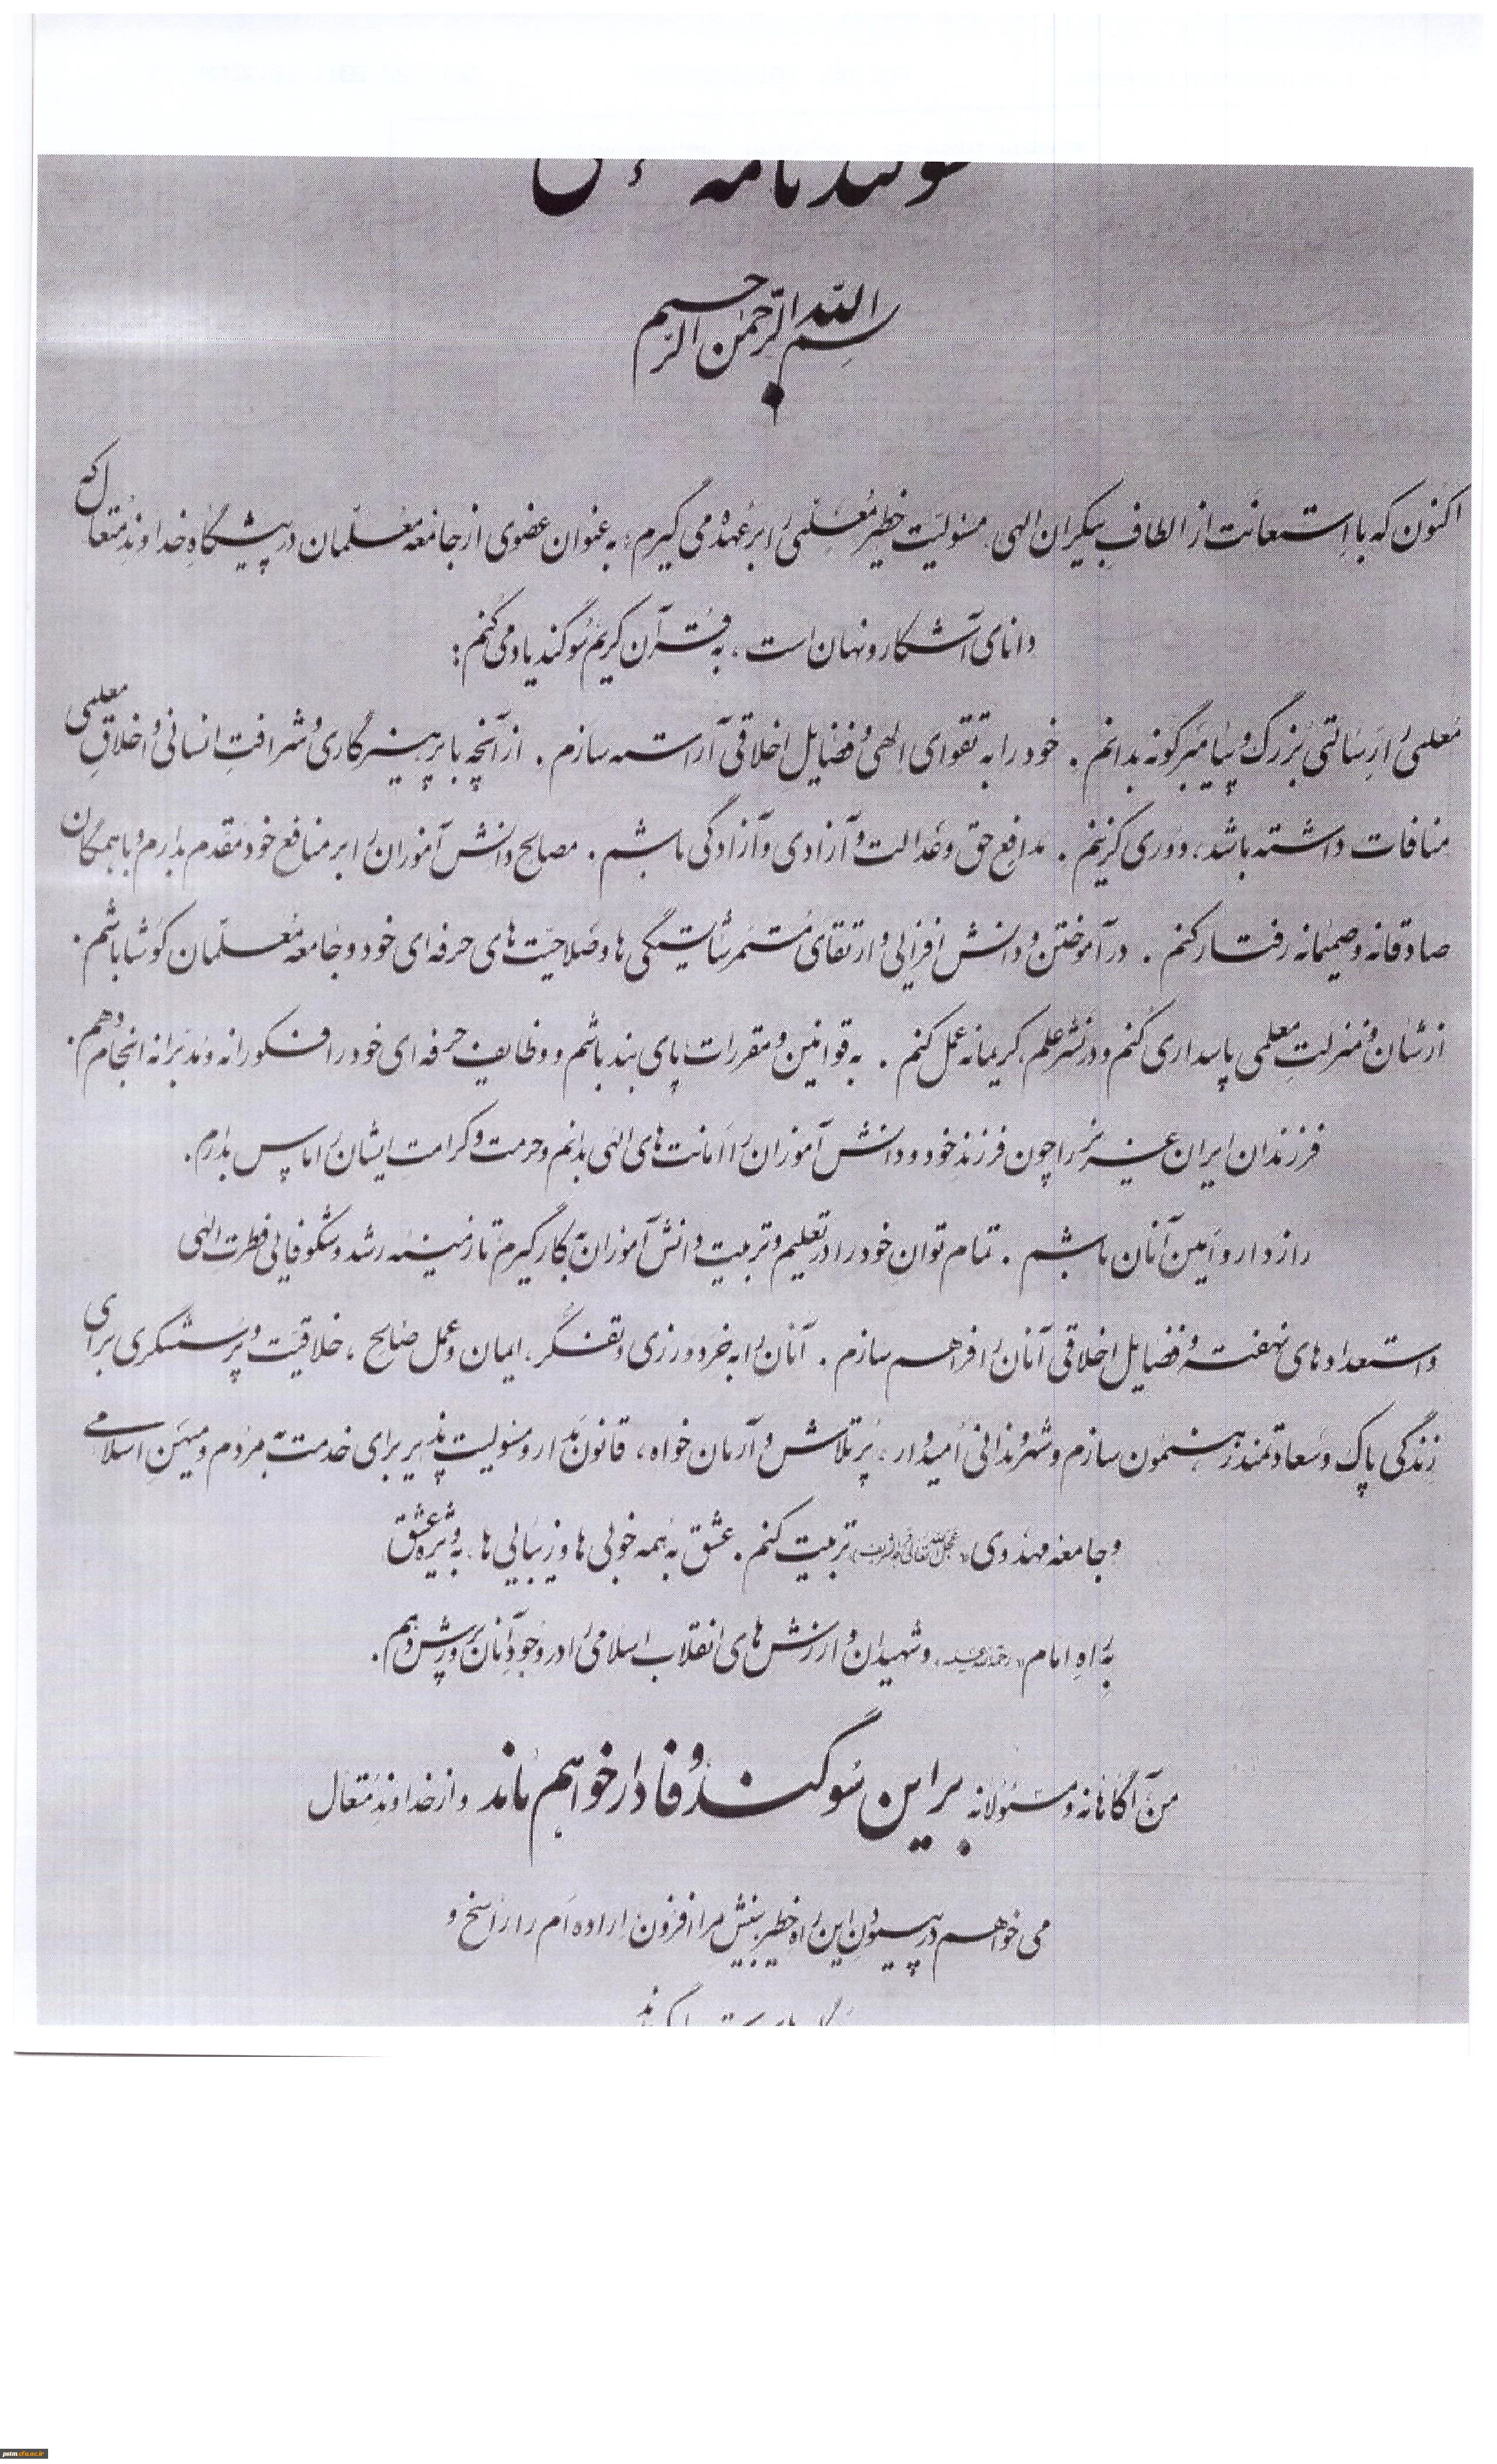 سوگندنامه
بسم الله الرحمن الرحیم
اکنون که با استعانت از الطاف بیکران الهی، مسئولیت خطیر معلمی را بر عهده می گیرم؛ به عنوان عضوی از جامعه معلّمان در پیشگاه خداوند متعال که
دانای آشکار و نهان است، به قرآن کریم سوگند یاد می کنم:
معلمی را رسالتی بزرگ و پیامبر گونه بدانم. خود را به تقوای الهی و فضایل اخلاقی آراسته سازم. از آنچه با پرهیزگاری و شرافت انسانی و اخلاق معلمی
منافات داشته باشد، دوری گزینم. مدافع حق و عدالت و آزادی و آزادگی باشم. مصالح دانش آموزان را بر منافع خود مقدم بدارم و با همگان
صادقانه و صمیمانه رفتار کنم. در آموختن و دانش افزایی و ارتقای مستمر شایستگی ها و صلاحیت های حرفه ای خود و جامعه معلّمان کوشا باشم.
از شأن و منزلت معلمی پاسداری کنم و در نشر علم، کریمانه عمل کنم. به قوانین و مقررات پای بند باشم و وظایف حرفه ای خود را فکورانه و مدبرانه انجام دهم.
فرزندان ایران عزیز را چون فرزند خود و دانش آموزان را امانت های الهی بدانم و حرمت و کرامت ایشان را پاس بدارم.
رازدار و امین آنان باشم. تمام توان خود را در تعلیم و تربیت دانش آموزان به کار گیرم تا زمینه رشد و شکوفایی فطرت الهی
و استعدادهای نهفته و فضایل اخلاقی آنان را فراهم سازم. آنان را به خردورزی و تفکر، ایمان و عمل صالح، خلاقیت و پرسشگری برای
زندگی پاک و سعادتمند رهنمون سازم و شهروندانی امیدوار، پر تلاش و آرمان خواه، قانون مدار و مسئولیت پذیر برای خدمت به مردم و میهن اسلامی
و جامعه مهدوی «عجل الله تعالی فرجه الشریف» تربیت کنم. عشق به همه خوبی ها و زیبایی ها، به ویژه عشق
به راه امام «رحمة الله علیه» و شهیدان و ارزش های انقلاب اسلامی را در وجود آنان پرورش دهم.
من آگاهانه و مسئولانه بر این سوگند وفادار خواهم ماند و از خداوند متعال
می خواهم در پیمودن این راه خطیر بینش مرا افزون، اراده ام را راسخ و
pstm.cfu.ac.ir